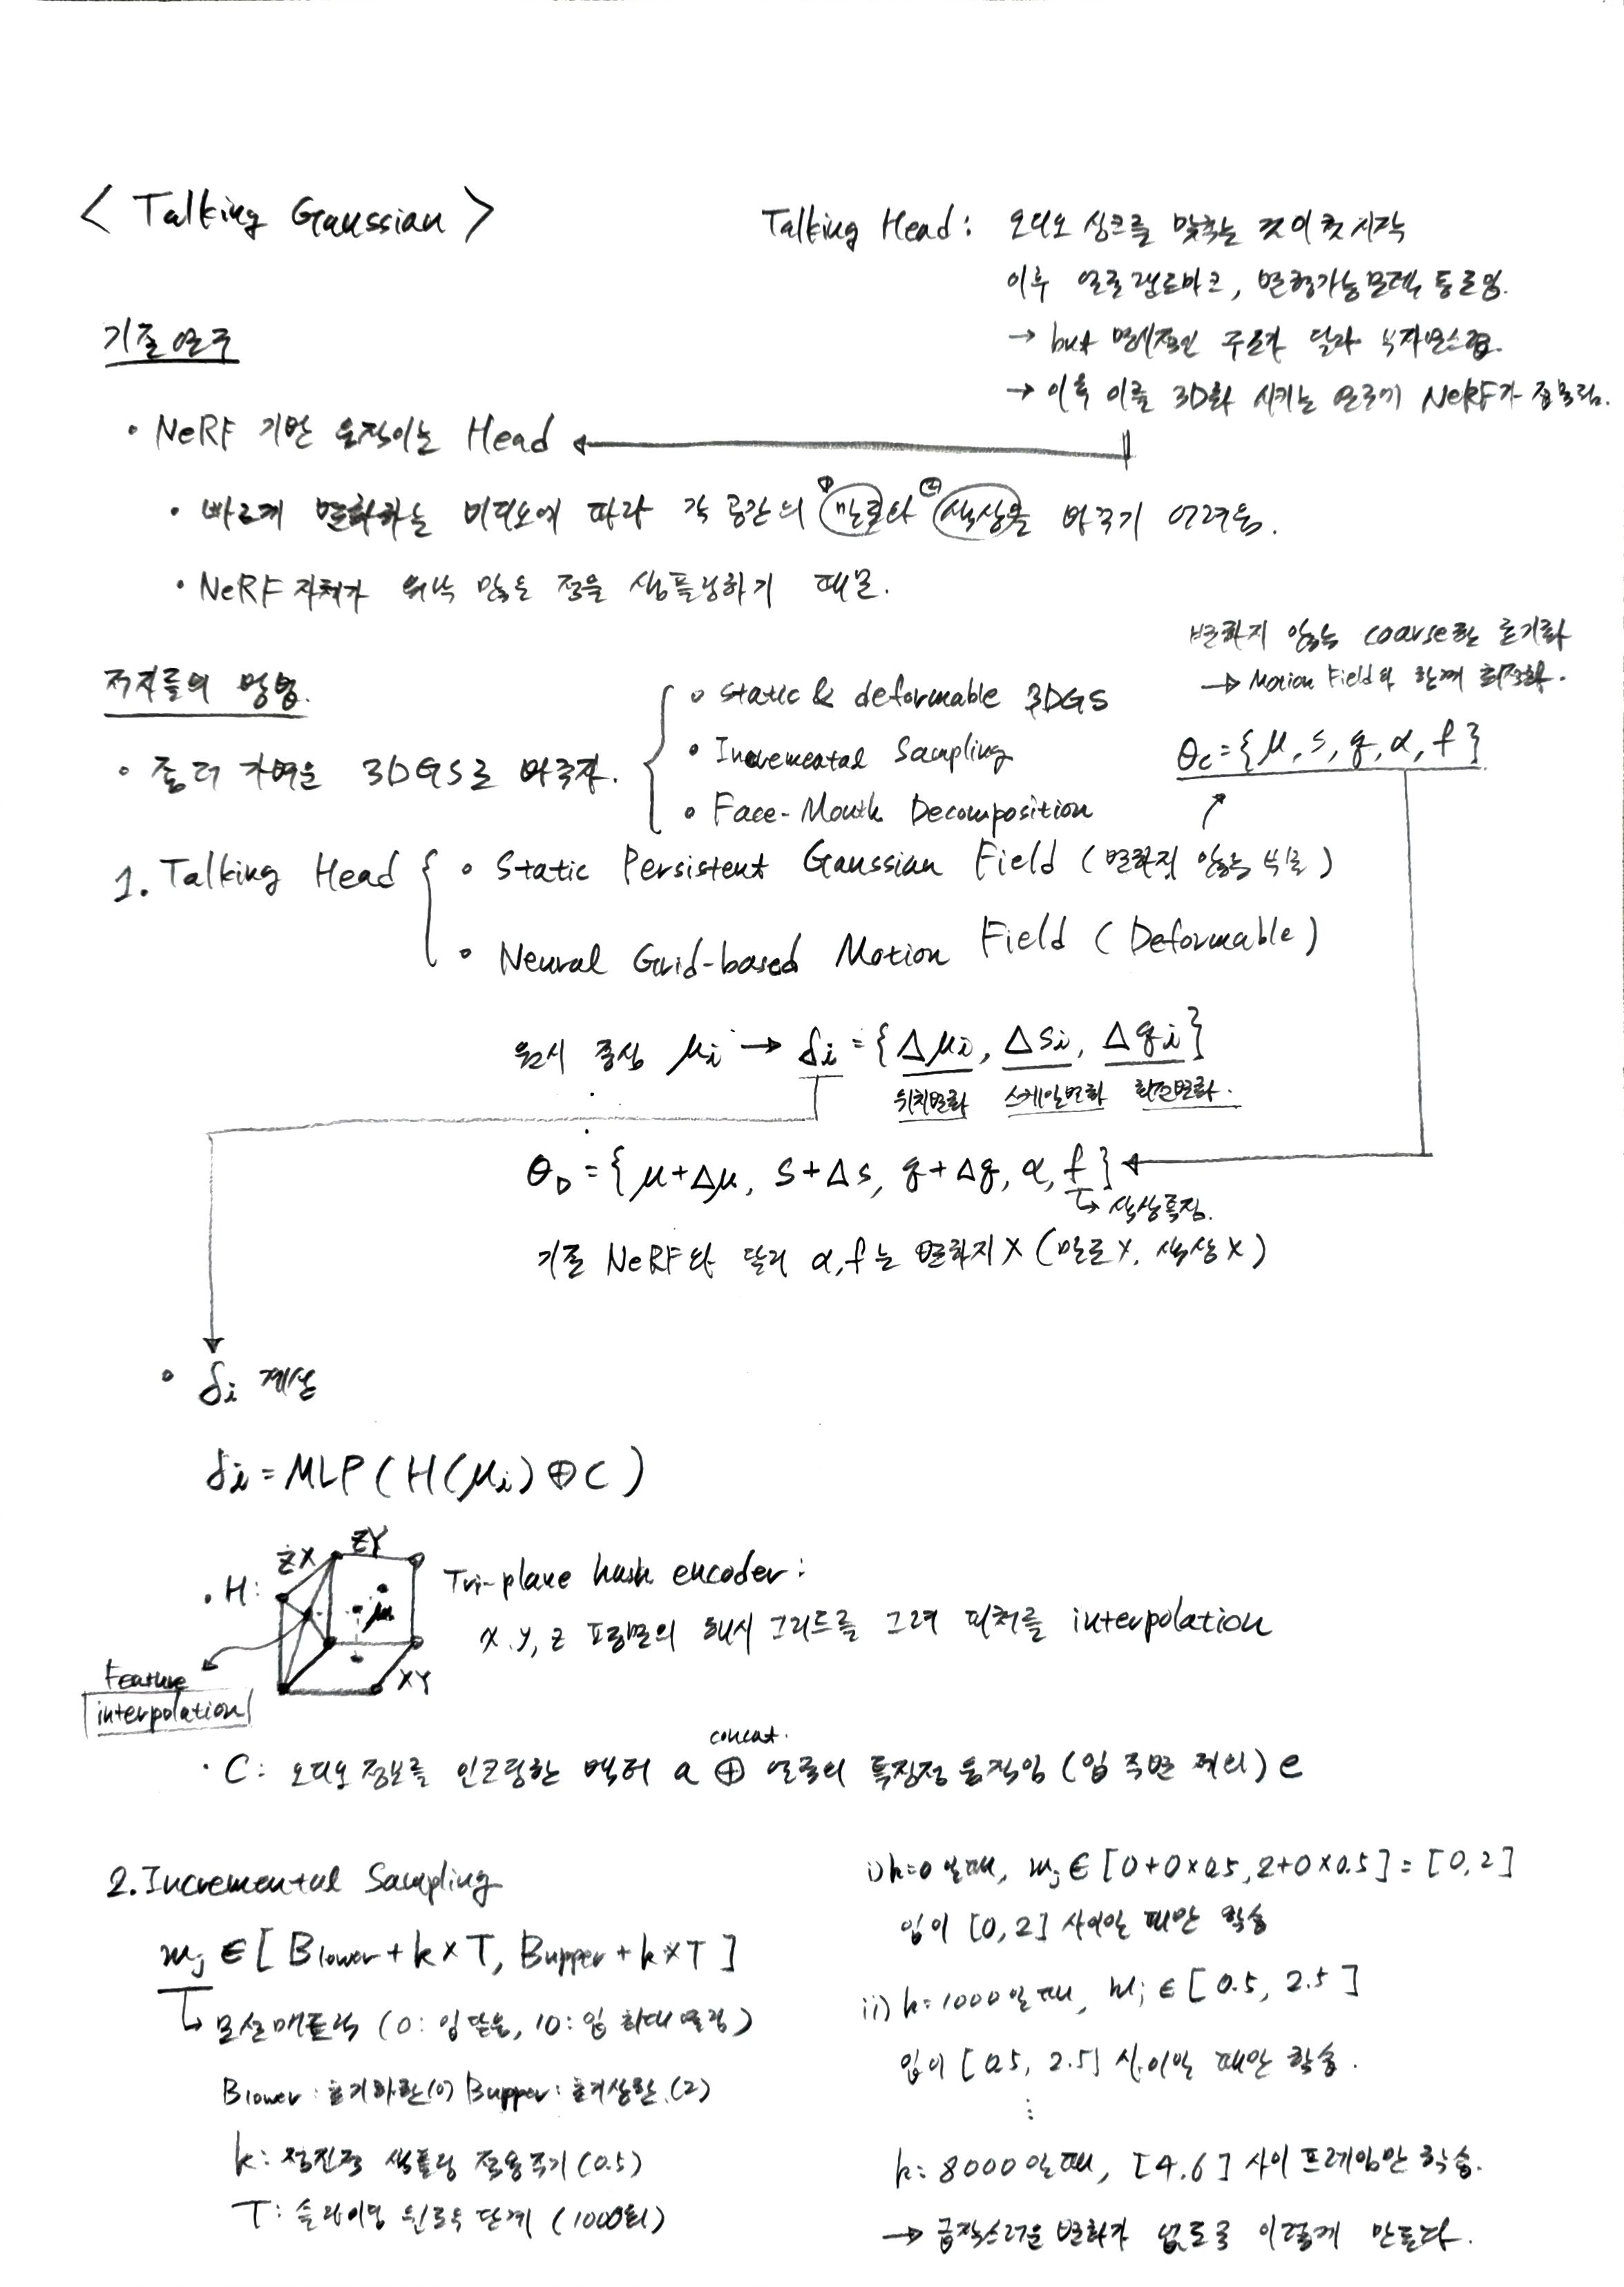 < Talking Gaussian >
Talking Head : 오디오 싱크를 맞추는 것이 첫 시작
이후 얼굴 랜드마크, 변형가능모델 등 도입.
→ but 명시적인 구조가 달라 부자연스럽.
→ 이후 이를 3D화 시키는 연구에 NeRF가
기존 연구
• NeRF 기반 움직이는 Head
• 빠르게 변화하는 비디오에 따라 각 공간의 ① 밀도와 ② 색상을 바꾸기 어려움.
• NeRF 자체가 워낙 많은 점을 샘플링하기 때문.
저자들의 방법.
• 좀 더 가벼운 3DGS로 바꾸자.
• static & deformable 3DGS
• Incremental Sampling
• Face-Mouth Decomposition
변하지 않는 coarse한 초기화
→ Motion Field와 함께 최적화.
θc = {μ, s, q, α, f}
1. Talking Head
• Static Persistent Gaussian Field (변하지 않는 부분)
• Neural Grid-based Motion Field (Deformable)
원시 중심 μi → δi = {Δμi, Δsi, Δqi}
위치변화 스케일변화 회전변화.
θD = {μ+Δμ, S+Δs, q+Δq, α, f}
↳ 색상특징.
기존 NeRF와 달리 α, f는 변하지 X (밀도 X, 색상 X)
• δi 계산
δi = MLP ( H(μi) ⊕ C )
• H:
ZX
ZY
μi
XY
Feature
interpolation
Tri-plane hash encoder :
x, y, z 평면의 해시 그리드를 그려 피처를 interpolation
concat.
• C: 오디오 정보를 인코딩한 벡터 a ⊕ 얼굴의 특징점 움직임 (입 주변 제외) e
2. Incremental Sampling
mj ∈ [ Blower + k × T, Bupper + k × T ]
↳ 모션매트릭 (0: 입 닫음, 10: 입 최대 열림)
Blower : 초기하한(0) Bupper : 초기상한.(2)
k: 점진적 샘플링 적용주기 (0.5)
T: 슬라이딩 윈도우 단계 (1000회)
i) k=0 일 때, mj ∈ [0+0×0.5, 2+0×0.5] = [0, 2]
입이 [0, 2] 사이일 때만 학습
ii) k=1000일 때, mj ∈ [0.5, 2.5]
입이 [0.5, 2.5] 사이일 때만 학습.
⋮
k=8000일 때, [4.6] 사이 프레임만 학습.
→ 급작스러운 변화가 없도록 이렇게 만든다.